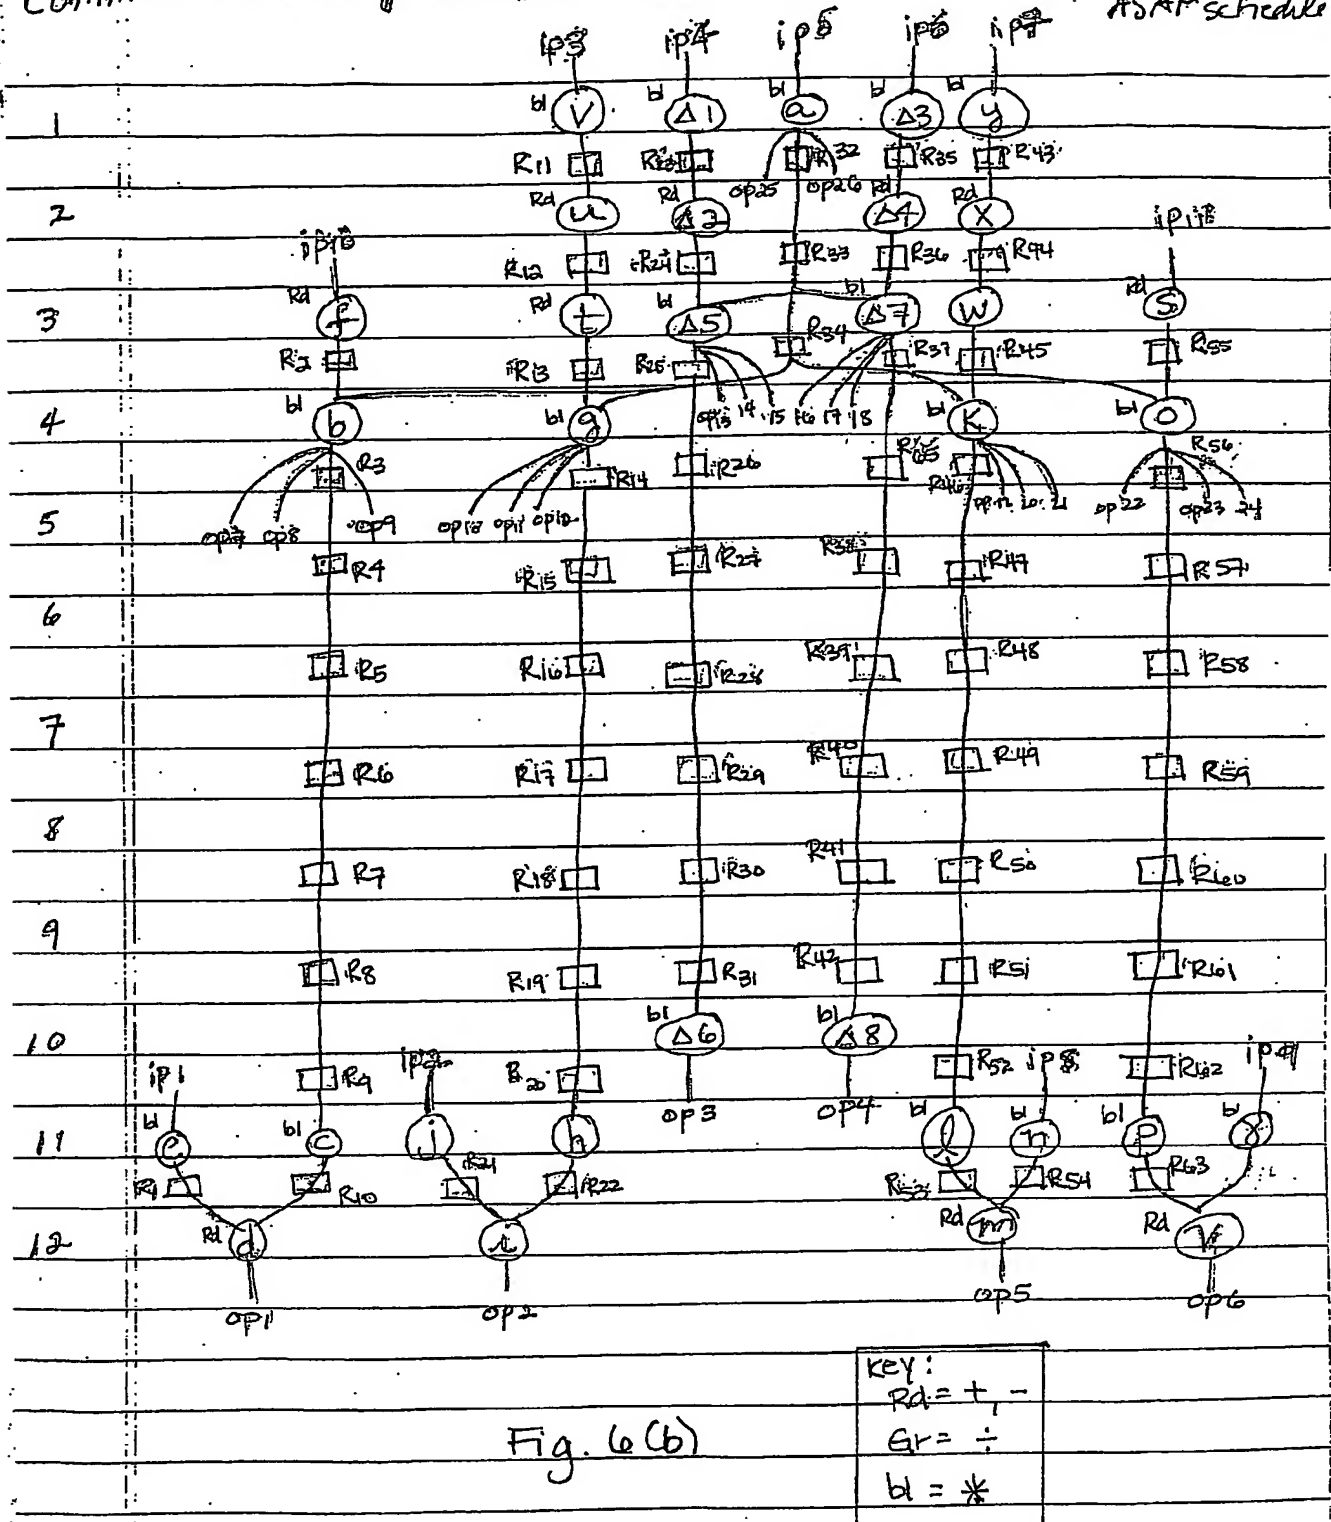 ASAP schedule
ip3 ip4 ip5 ip6 ip7
1 bl V bl Δ1 bl a bl Δ3 bl y
R11 R32 R35 R43
op25 op26
2 Rd u Rd Δ2 Rd Δ4 Rd X
ip10
R12 R24 R33 R36 R44
3 Rd f Rd t bl Δ5 bl Δ7 W Rd S
R2 R13 R25 R34 R37 R45 R55
4 bl b bl g op13 14 15 16 17 18 bl K bl o
R3 R14 R26 R46 R56
5 op8 op9 op10 op11 op12 op22 op23 24
R4 R15 R27 R38 R47 R57
6
R5 R16 R28 R39 R48 R58
7
R6 R17 R29 R40 R49 R59
8
R7 R18 R30 R41 R50 R60
9
R8 R19 R31 R42 R51 R61
10 bl Δ6 bl Δ8
ip1 R9 R20 R52 ip8 R62
op3 op4
11 bl e bl c j h bl l bl n bl p bl
R1 R10 R21 R22 R53 R54 R63
12 Rd d i Rd m Rd
op1 op2 op5 op6
Key:
Rd = +, -
Gr = ÷
bl = *
Fig. 6(b)